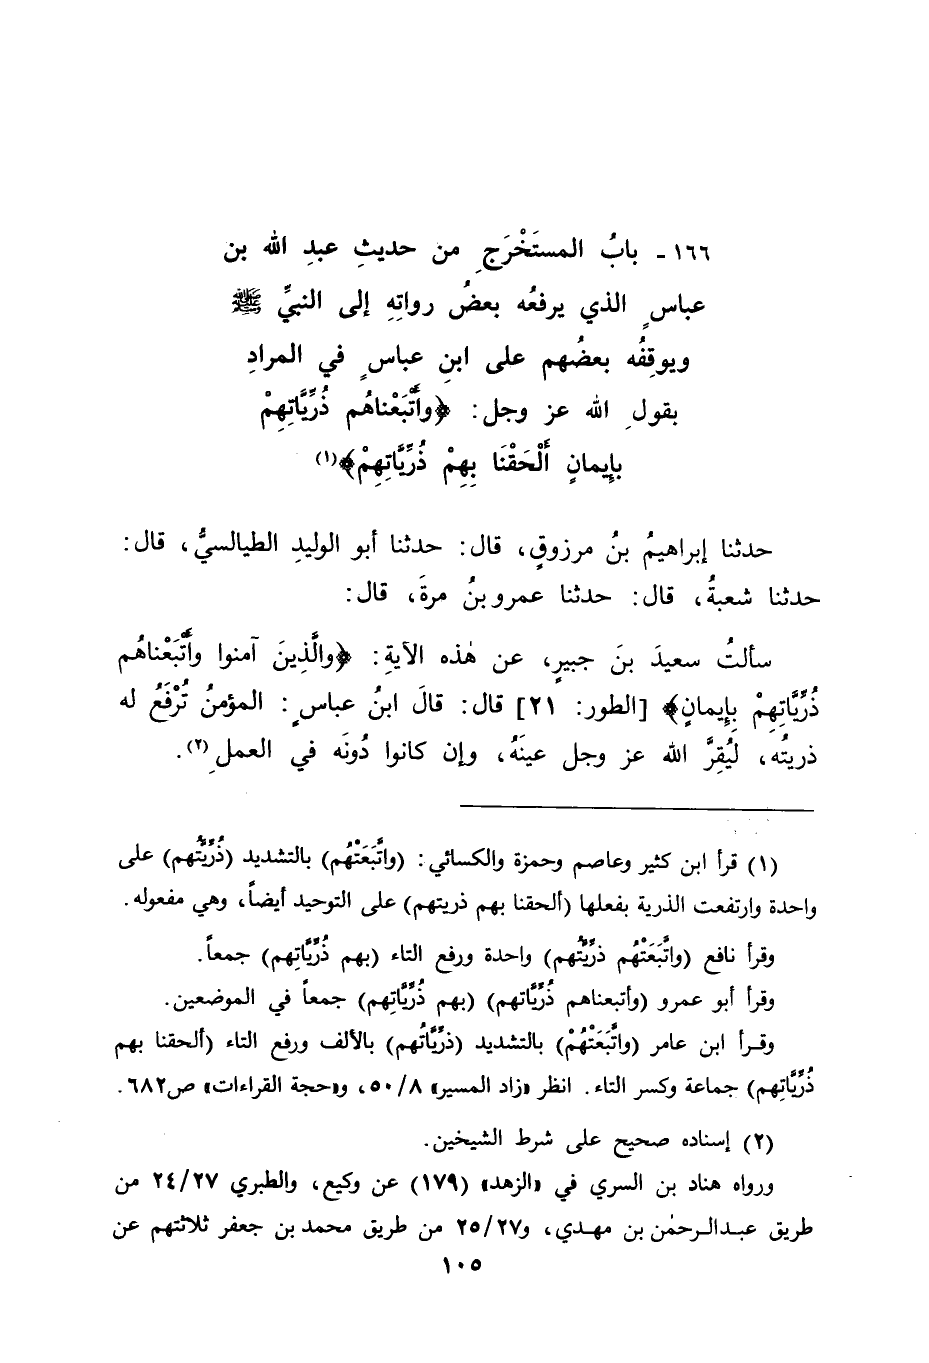 ١٦٦ - بابُ المستَخْرَجِ من حديثِ عبدِ الله بن
عباسٍ الذي يرفعُه بعضُ رواتِهِ إلى النبيِّ ﷺ
ويوقِفُه بعضُهم على ابنِ عباسٍ في المرادِ
بقولِ الله عز وجل: ﴿وأَتْبَعْناهُم ذُرِّيَّاتِهِمْ
بإِيمانٍ أَلْحَقْنَا بِهِمْ ذُرِّيَّاتِهِمْ﴾(١)
حدثنا إبراهيمُ بنُ مرزوقٍ، قال: حدثنا أبو الوليدِ الطيالسيُّ، قال:
حدثنا شعبةُ، قال: حدثنا عمرو بنُ مرةَ، قال:
سألتُ سعيدَ بنَ جبيرٍ، عن هٰذه الآيةِ: ﴿والَّذِينَ آمنوا وأَتْبَعْناهُم
ذُرِّيَّاتِهِمْ بِإِيمانٍ﴾ [الطور: ٢١] قال: قالَ ابنُ عباسٍ: المؤمنُ تُرْفَعُ له
ذريتُه، ليُقِرَّ الله عز وجل عينَهُ، وإن كانوا دُونَه في العملِ(٢).
(١) قرأ ابن كثير وعاصم وحمزة والكسائي: (واتَّبَعَتْهُم) بالتشديد (ذُرِّيَّتُهم) على
واحدة وارتفعت الذرية بفعلها (ألحقنا بهم ذريتهم) على التوحيد أيضاً، وهي مفعوله.
وقرأ نافع (واتَّبَعَتْهُم ذرِّيَّتُهم) واحدة ورفع التاء (بهم ذُرِّيَّاتِهم) جمعاً.
وقرأ أبو عمرو (وأتبعناهم ذُرِّيَّاتهم) (بهم ذُرِّيَّاتِهم) جمعاً في الموضعين.
وقرأ ابن عامر (واتَّبَعَتْهُمْ) بالتشديد (ذرِّيَّاتُهم) بالألف ورفع التاء (ألحقنا بهم
ذُرِّيَّاتِهم) جماعة وكسر التاء. انظر «زاد المسير» ٥٠/٨، و«حجة القراءات» ص٦٨٢.
(٢) إسناده صحيح على شرط الشيخين.
ورواه هناد بن السري في «الزهد» (١٧٩) عن وكيع، والطبري ٢٤/٢٧ من
طريق عبدالرحمٰن بن مهدي، و٢٥/٢٧ من طريق محمد بن جعفر ثلاثتهم عن
١٠٥